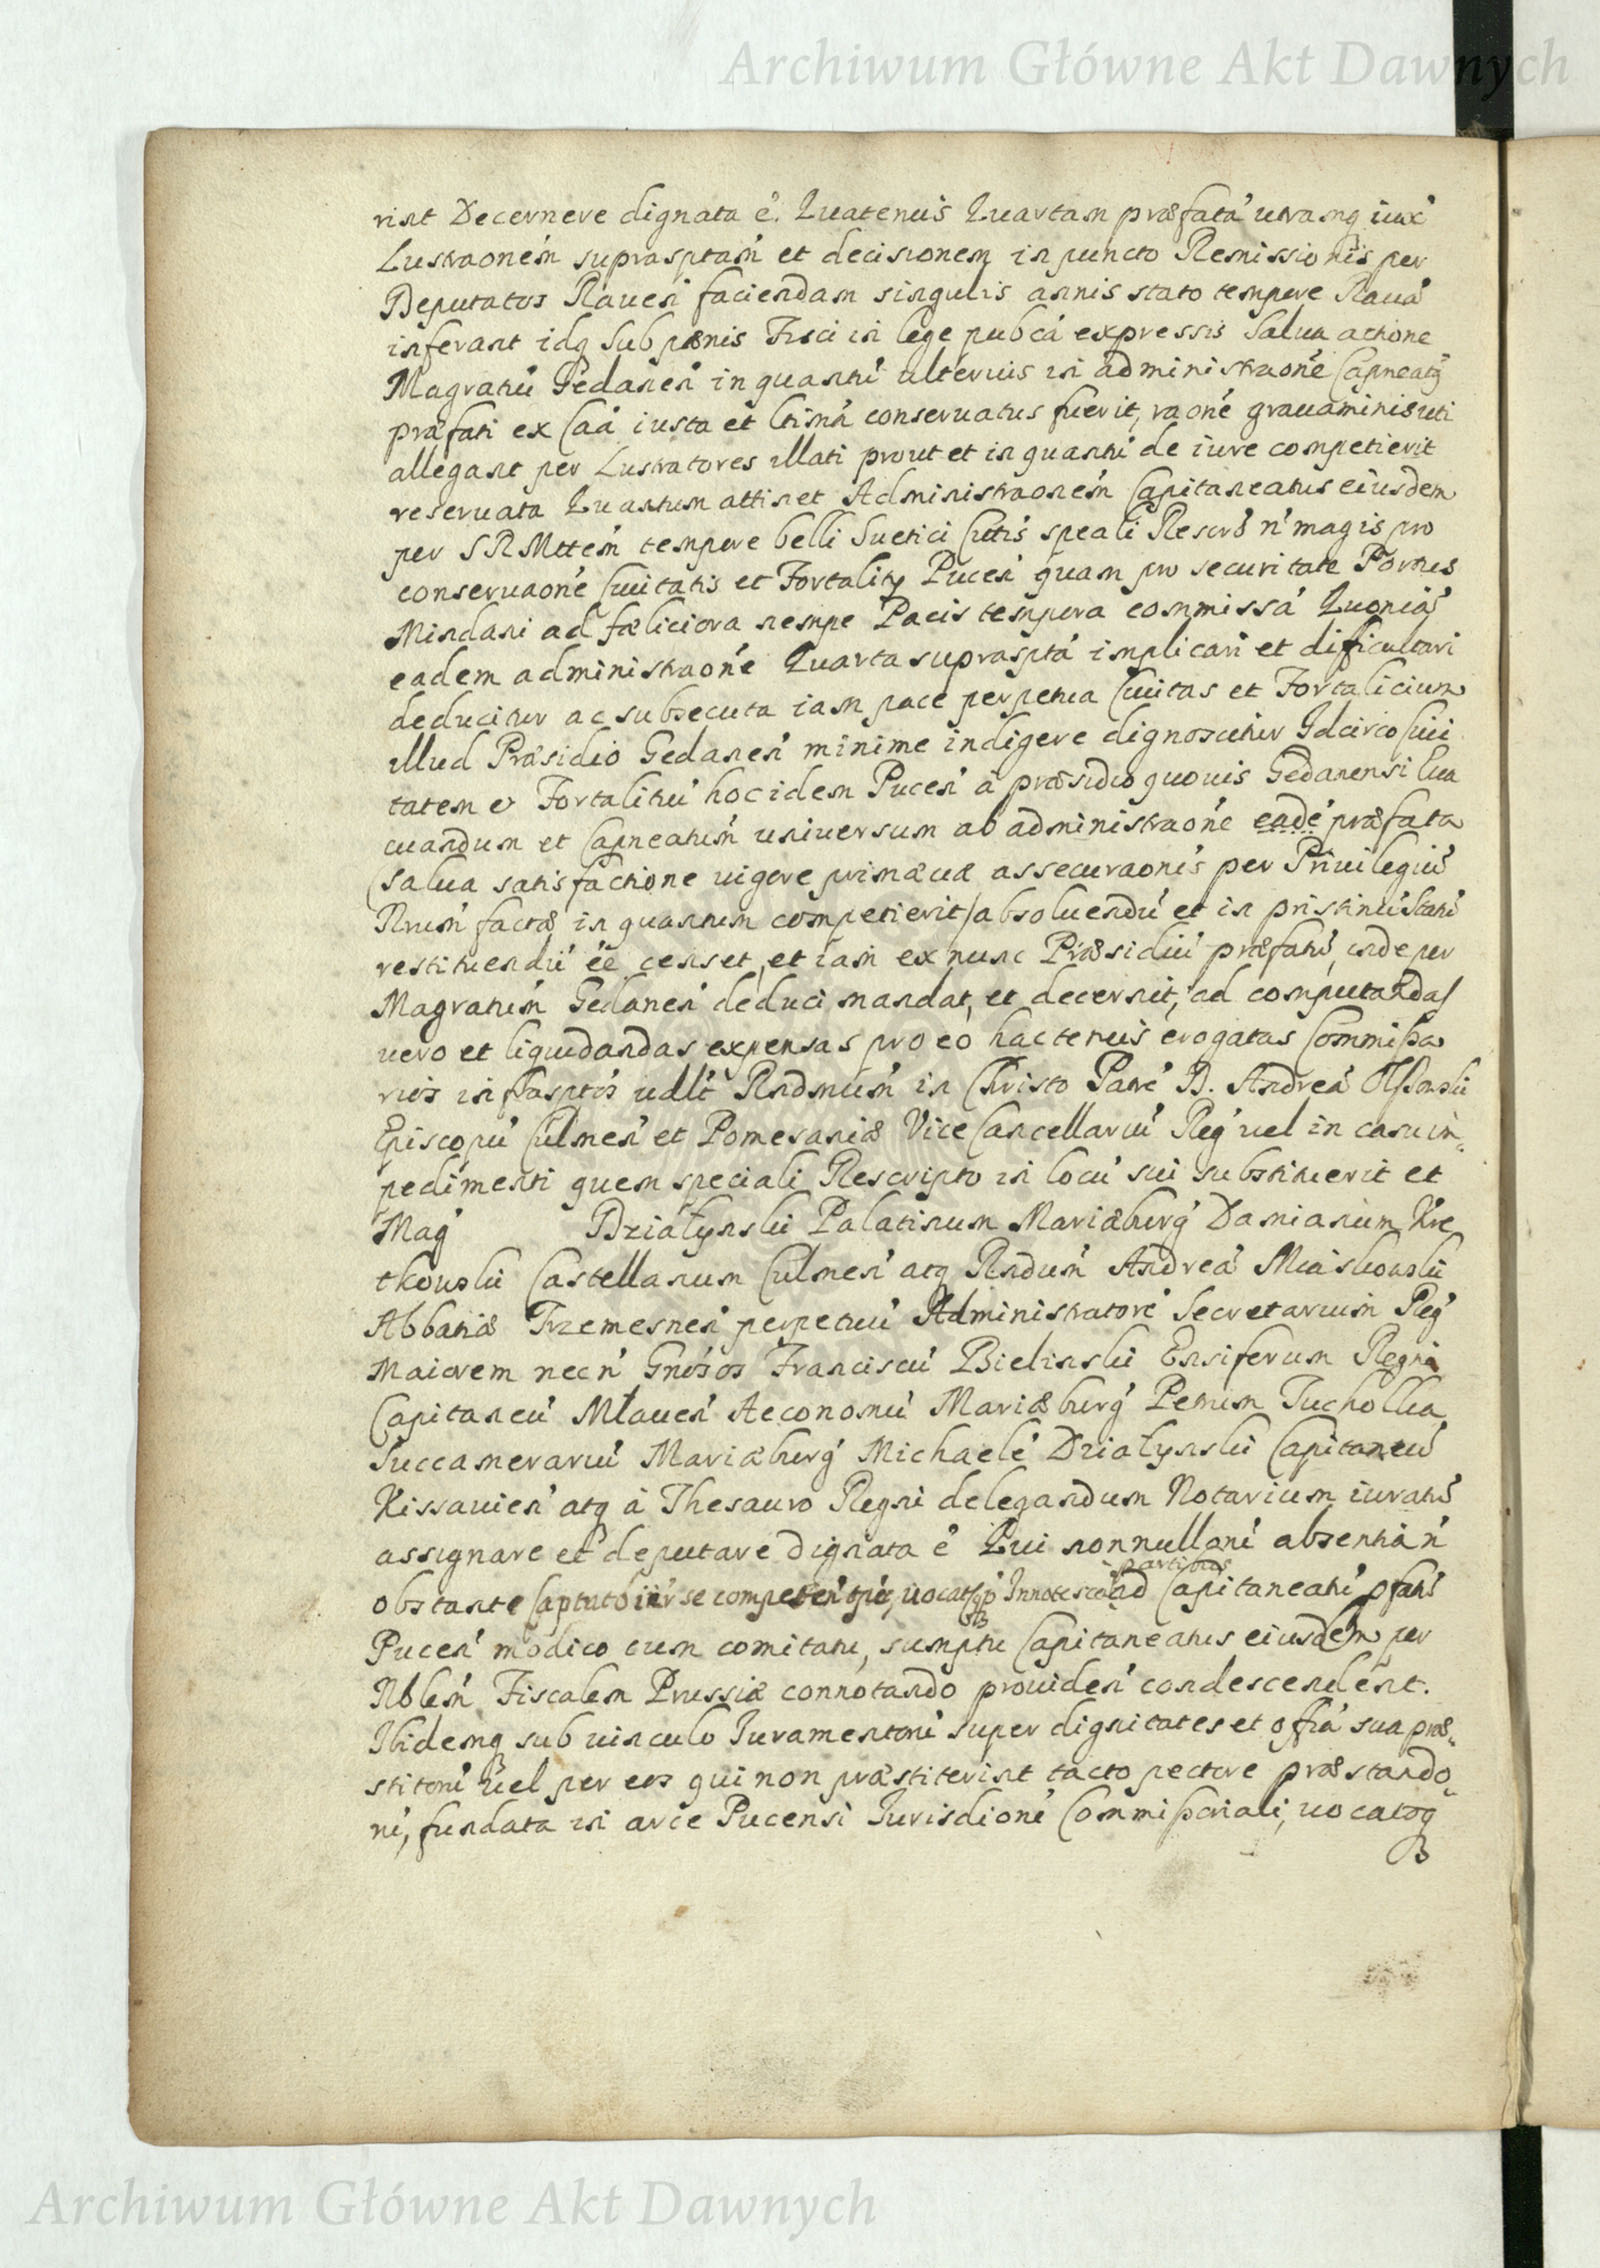 Archiwum Główne Akt Dawnych
rint Decernere dignata é. Quatenus Quartam præfatá utramq iux́
Lustraoném supraspta​ḿ et decisionem in puncto Remissionis per
Deputatos Raueń faciendam singulis annis stato tempore Rauá
inferant idq sub pænis Fisci in lege pub́ca expressis Salua actione
Magratú Gedaneń inquantú ulterius in administraoné Capneatq
præfati ex Caá iusta et ltimá conseruatus fuerit, raoné grauaminis uti
allegant per Lustratores illati prout et in quantú de iure competierit
reseruata Quantum attinet Administraoném Capitaneatus eiusdem
per SRMttém tempore belli Suetici Cutis speali Rescró ń magis pro
conseruaoné Ciuitatis et Fortality Puceń quam pro securitate Portus
Mindani ad fæliciora nempe Pacis tempora commissá Quoniá
eadem administraoné Quarta supraspta implicari et difficultari
deducitur ac subsecuta iam pace perpetua Ciuitas et Fortalicium
illud Præsidio Gedaneń minime indigere dignoscitur Idcirco Ciui
tatem & Fortalitiú hoc idem Puceń á præsidio quouis Gedanensi Eua
cuandum et Capneatúm uniuersum ab administraoné eadé præfata
(salua satisfactione uigore primæuæ assecuraonis per Priuilegiú
Rrum factæ in quantum competierit) absoluendú et in pristinú statú
restituendú éé censet, et iam ex nunc Præsidiú præfatú, inde per
Magratúm Gedaneń deduci mandat, et decernit, ad computandas
uero et liquidandas expensas pro eo hactenus erogatas Commissa
rios infrasptos udlt Rndmúm in Christo Patré D. Andreá Olszowski
Episcopú Culmeń et Pomesaniæ Vice Cancellariú Reg uel in casu im-
pedimenti quem speciali Rescripto in locú sui substituerit et
Mag Działynski Palatinum Mariæburg Damianum Kre
tkowski Castellanum Culmeń atq Rndum Andreá Miaskowski
Abbatiæ Trzemesneń perpetuú Administratoré Secretarium Reg
Maiorem necń Gnósos Franciscú Bielinski Ensiferum Regni
Capitaneú Młaueń Aeconomú Mariæburg Petrum Tuchołka
Succamerariú Mariæburg Michaelé Działynski Capitaneú
Kissauień atq á Thesauro Regni delegandum Notarium iuratú
assignare et deputare dignata é Qui nonnulloní absentia ń
partibus
obstante se competeń uocatis p Innotescen ad Capitaneatú pfatú
Puceń modico cum comitatu, sumptu Capitaneatus eiusdem per
Nblém Fiscalem Prussiæ connotando prouideń condescendent.
Ibidemq sub uinculo Iuramentoní super dignitates et offia sua præ-
stitoní uel per eos qui non præstiterint tacto pectore præstando-
ní, fundata in arce Pucensi Iurisdioné Commissariali, uocatoq
Archiwum Główne Akt Dawnych